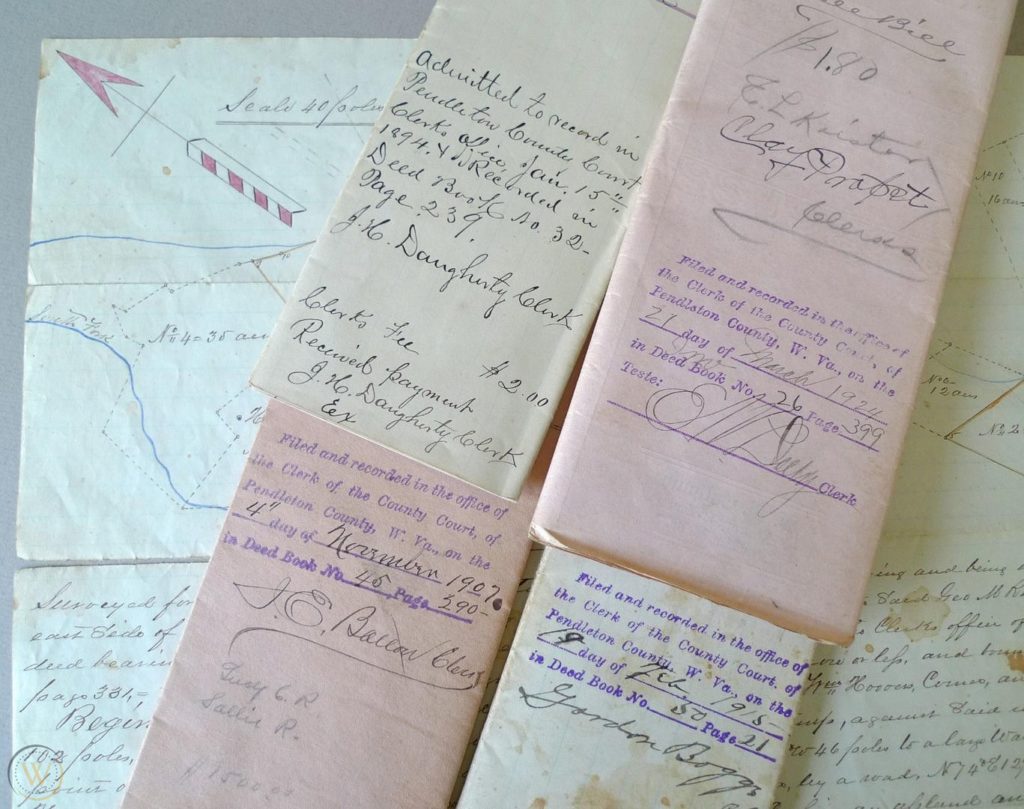 Scale 40 poles
South Fork
No 4 = 35 acres
Admitted to record in
Pendleton County Court
Clerks office, Jan. 15"
1894. & Recorded in
Deed Book No. 32-
Page 239
J. H. Daugherty Clerk
Clerks Fee $2.00
Received payment
J. H. Daugherty Clerk
Bill
1.80
Clerks
Filed and recorded in the office of
the Clerk of the County Court, of
Pendleton County, W. Va., on the
21 day of March 1924
in Deed Book No. 26 Page 399
Teste:
Clerk
No 10
12 acres
No 2
Filed and recorded in the office of
the Clerk of the County Court, of
Pendleton County, W. Va., on the
4" day of November 1907.
in Deed Book No. 45 Page 290
Clerk
Lucy C. R.
Sallie R.
Filed and recorded in the office of
the Clerk of the County Court. of
Pendleton County, W. Va., on the
19 day of Feb. 1915
in Deed Book No. 50 Page 21
Gordon Boggs
Surveyed for
east side of
deed bearin
page 331,=
Begin
102 poles,
point o
ing and being o
Said Geo M
Clerks office of
or less, and boun
Hoover, Corner, an
against said
46 poles to a large
by a road, N 74° E 12
W